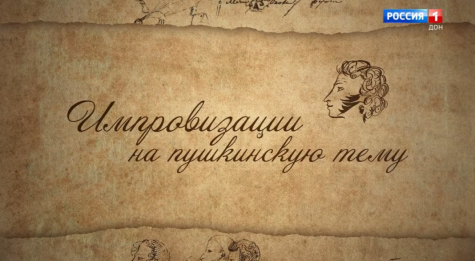 РОССИЯ 1
ДОН
Импровизации
на пушкинскую тему